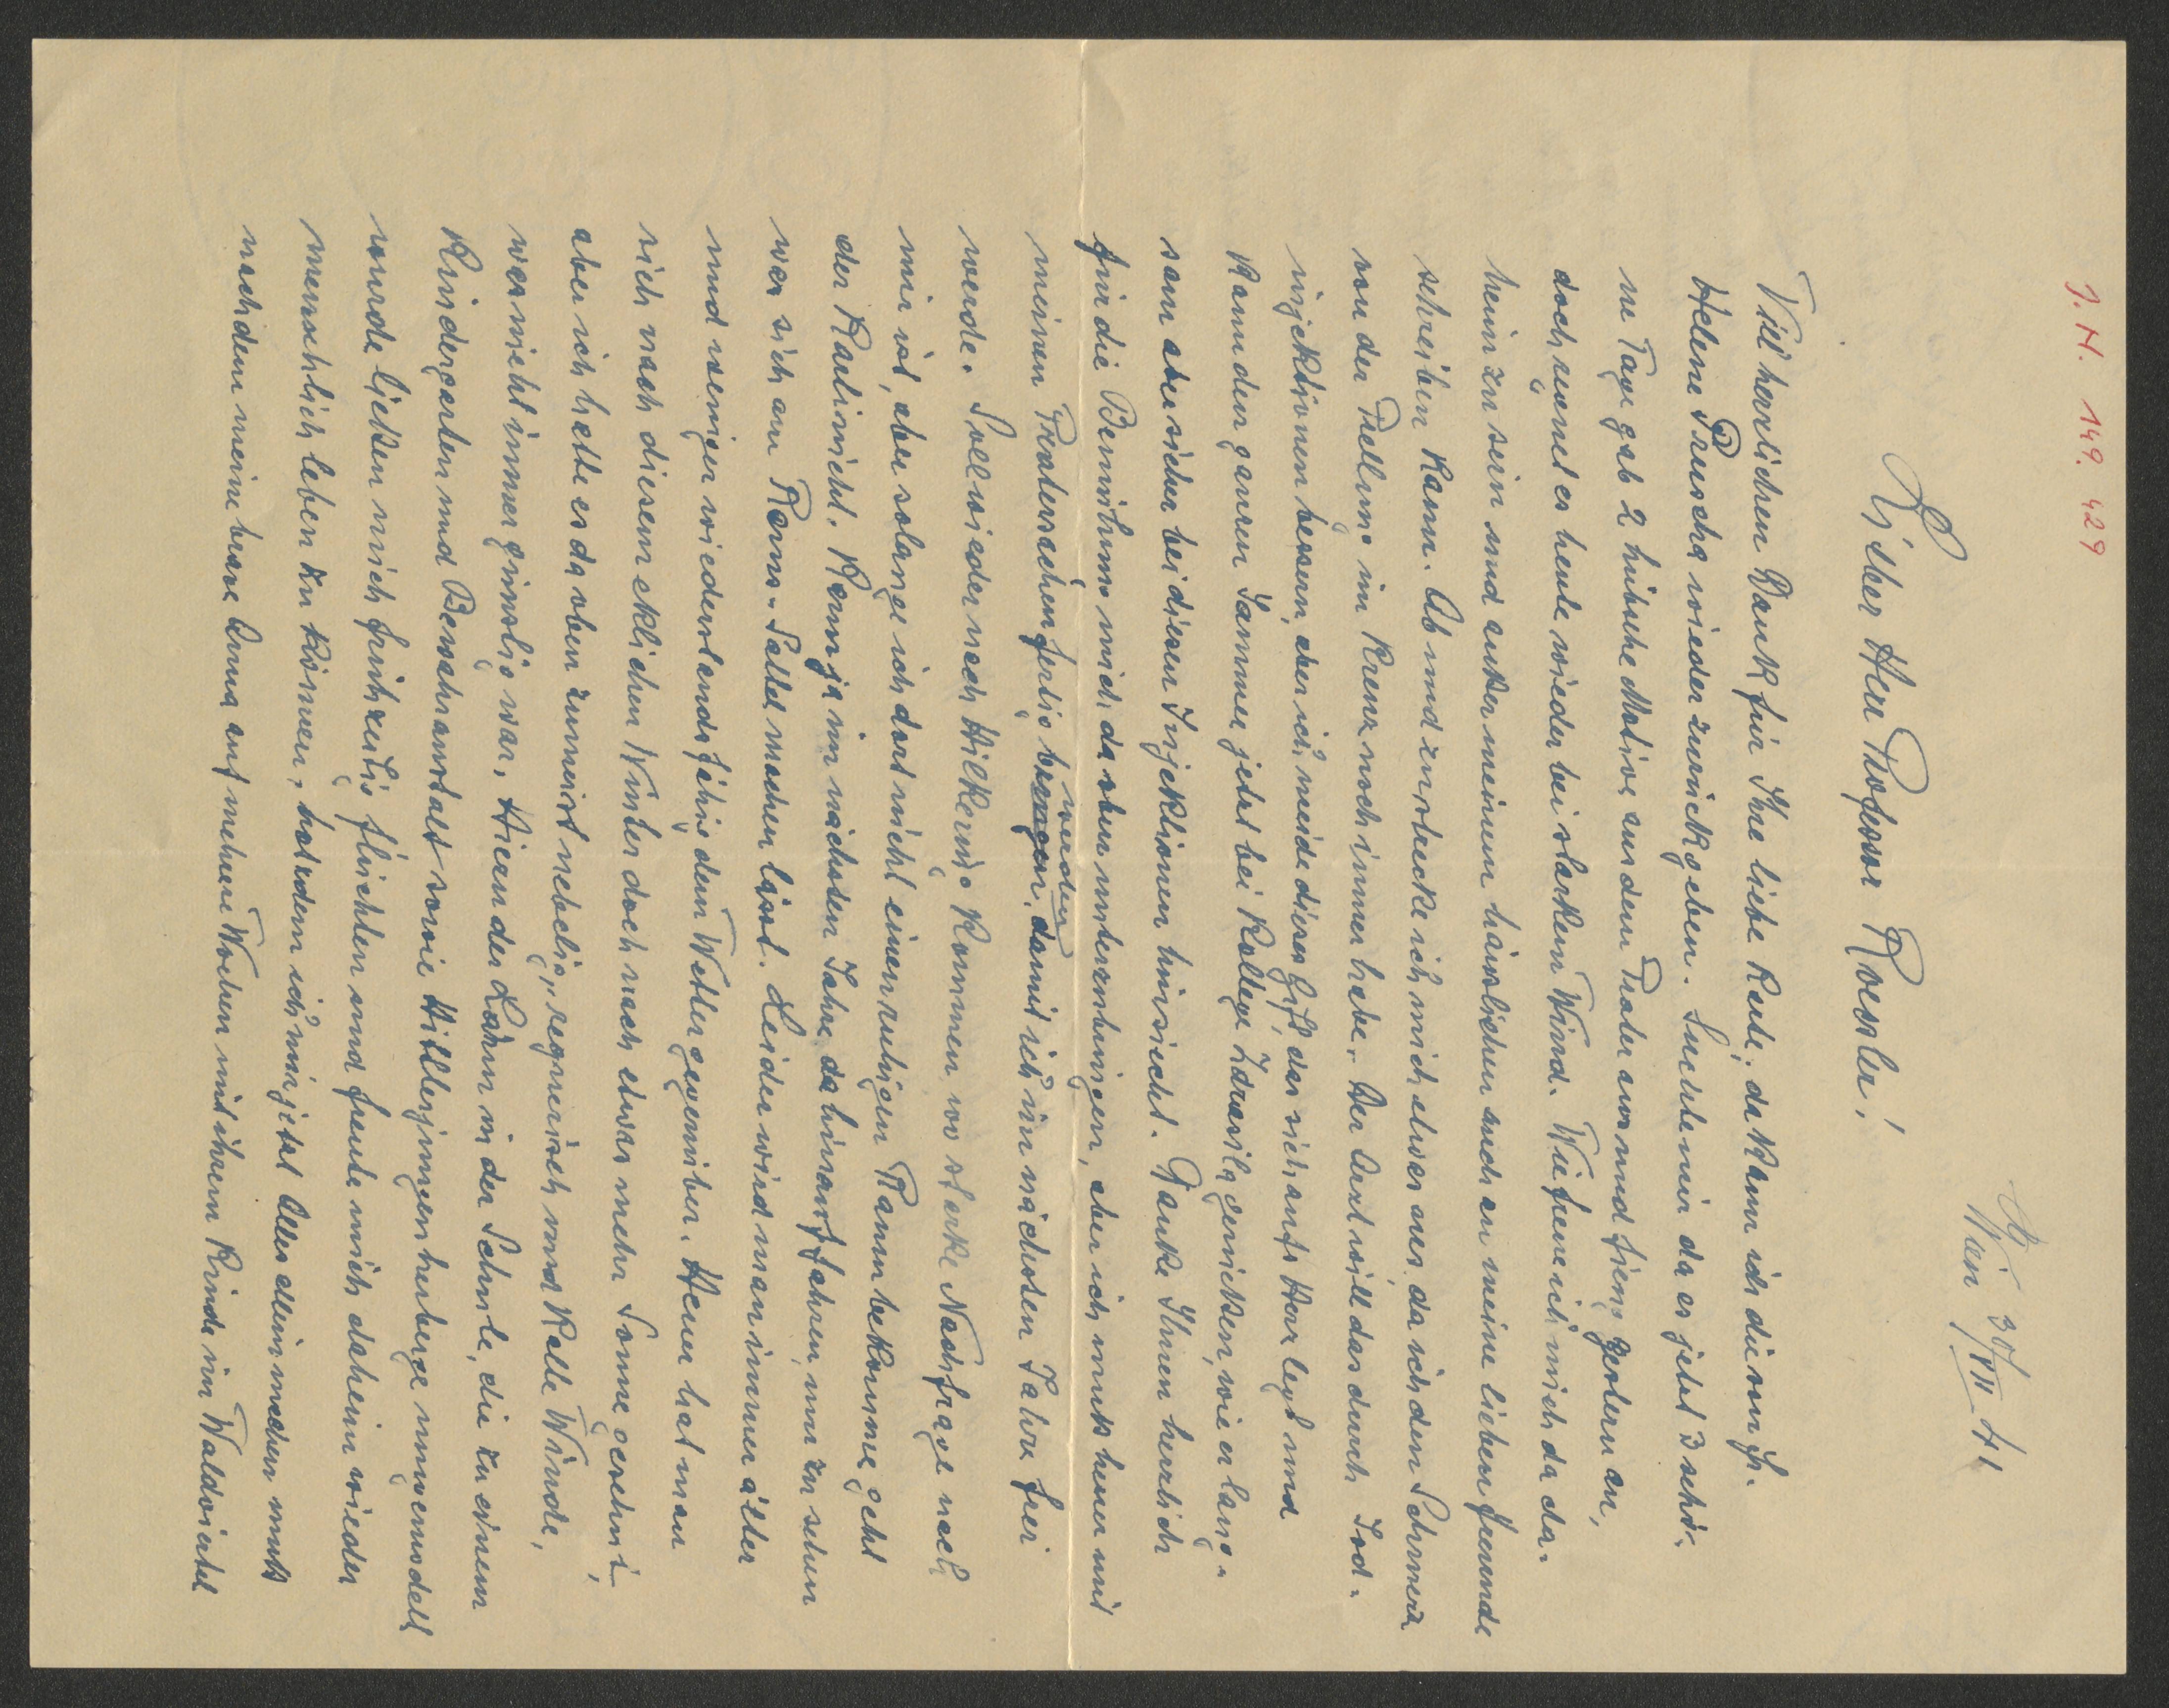 J. N. 149.429
Wien 30/VII 41
Lieber Herr Professor Roessler!
Viel herzlichen Dank für Ihre liebe Karte, da kann ich die von Fr.
Helene Pruscha wieder zurückgeben. Suchte mir da es jetzt 3 schö-
ne Tage gab 2 hübsche Motive aus dem Prater aus und fieng gestern an,
doch regnet es heute wieder bei starkem Wind. Wie freue ich mich da da-
heim zu sein und außer meinem häuslichen auch an meine lieben Freunde
schreiben kann. Ab und zu strecke ich mich etwas aus, da ich den Schmerz
von der Zellung im Kreuz noch immer habe. Der Arzt will das durch Jod-
injektionen bessern, aber ich meide dieses Gift, das sich aufs Herz legt und
kann den ganzen Jammer jetzt bei Kollege Zdrasila genießen, wie er lang-
sam aber sicher bei diesen Injektionen hinsiecht. Danke Ihnen herzlich
für die Bemühung mich da oben unterzubringen, aber ich muß heuer mit
meinen Pratersachen fertig werden, damit ich im nächsten Jahre frei
werde. Soll wieder nach Hilkering kommen wo starke Nachfrage nach
mir ist, aber solange ich dort nicht einen ruhigen Raum bekomme geht
der Karli nicht. Kann ja im nächsten Jahre da hinauf fahren, um zu sehen
was sich am Rams-Sattel machen lässt. Leider wird man immer älter
und weniger wiederstandsfähig dem Wetter gegenüber. Heuer hat man
sich nach diesem eklichen Winter doch nach etwas mehr Sonne gesehnt,
aber ich hätte es da oben zumeist nebelig, regnerisch und kalte Winde,
was nicht immer günstig war. Hier der Lärm in der Schule, die zu einem
Kindergarten und Bewahranstalt sowie Hitlerjungenherberge umgemodelt
wurde ließen mich frühzeitig flüchten und freute mich daheim wieder
menschlich leben zu können, trotzdem ich mir jetzt Alles allein machen muß
nachdem meine brave Anna auf mehrere Wochen mit ihrem Kinde im Waldviertel